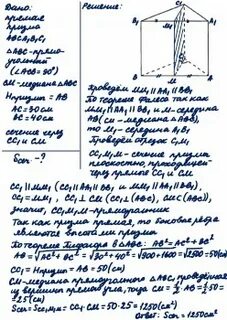 Дано:
прямая
призма
ABCA₁B₁C₁
△ABC - прямо-
угольный
(∠ACB = 90°)
CM - медиана △ABC
Hпризмы = AB
AC = 30 см
BC = 40 см
сечение через
CC₁ и CM
Sсеч - ?
Решение:
C₁
B₁ M₁ A₁
C
B M A
Проведём MM₁ || AA₁ || BB₁
По теореме Фалеса так как
MM₁ || AA₁ || BB₁ и M - середина
AB (CM - медиана △ABC),
то M₁ - середина A₁B₁
Проведём отрезок C₁M₁
CC₁M₁M - сечение призмы
плоскостью, проходящей
через прямые CC₁ и CM
CC₁ || MM₁ (CC₁ || AA₁ || BB₁ и MM₁ || AA₁ || BB₁)
CC₁ = MM₁, CC₁ ⊥ CM (CC₁ ⊥ (ABC), CM ⊂ (ABC)),
значит, CC₁M₁M - прямоугольник
Так как призма прямая, то боковые рёбра
являются высотами призмы
По теореме Пифагора в △ABC: AB² = AC² + BC²
AB = √AC² + BC² = √30² + 40² = √900 + 1600 = √2500 = 50 (см)
CC₁ = Hпризмы = AB = 50 (см)
CM - медиана прямоугольного △ABC, проведённая
из вершины прямого угла, тогда CM = ½ · AB = ½ · 50 =
= 25 (см)
Sсеч = CC₁ · CM = 50 · 25 = 1250 (см²)
Ответ: Sсеч = 1250 см²